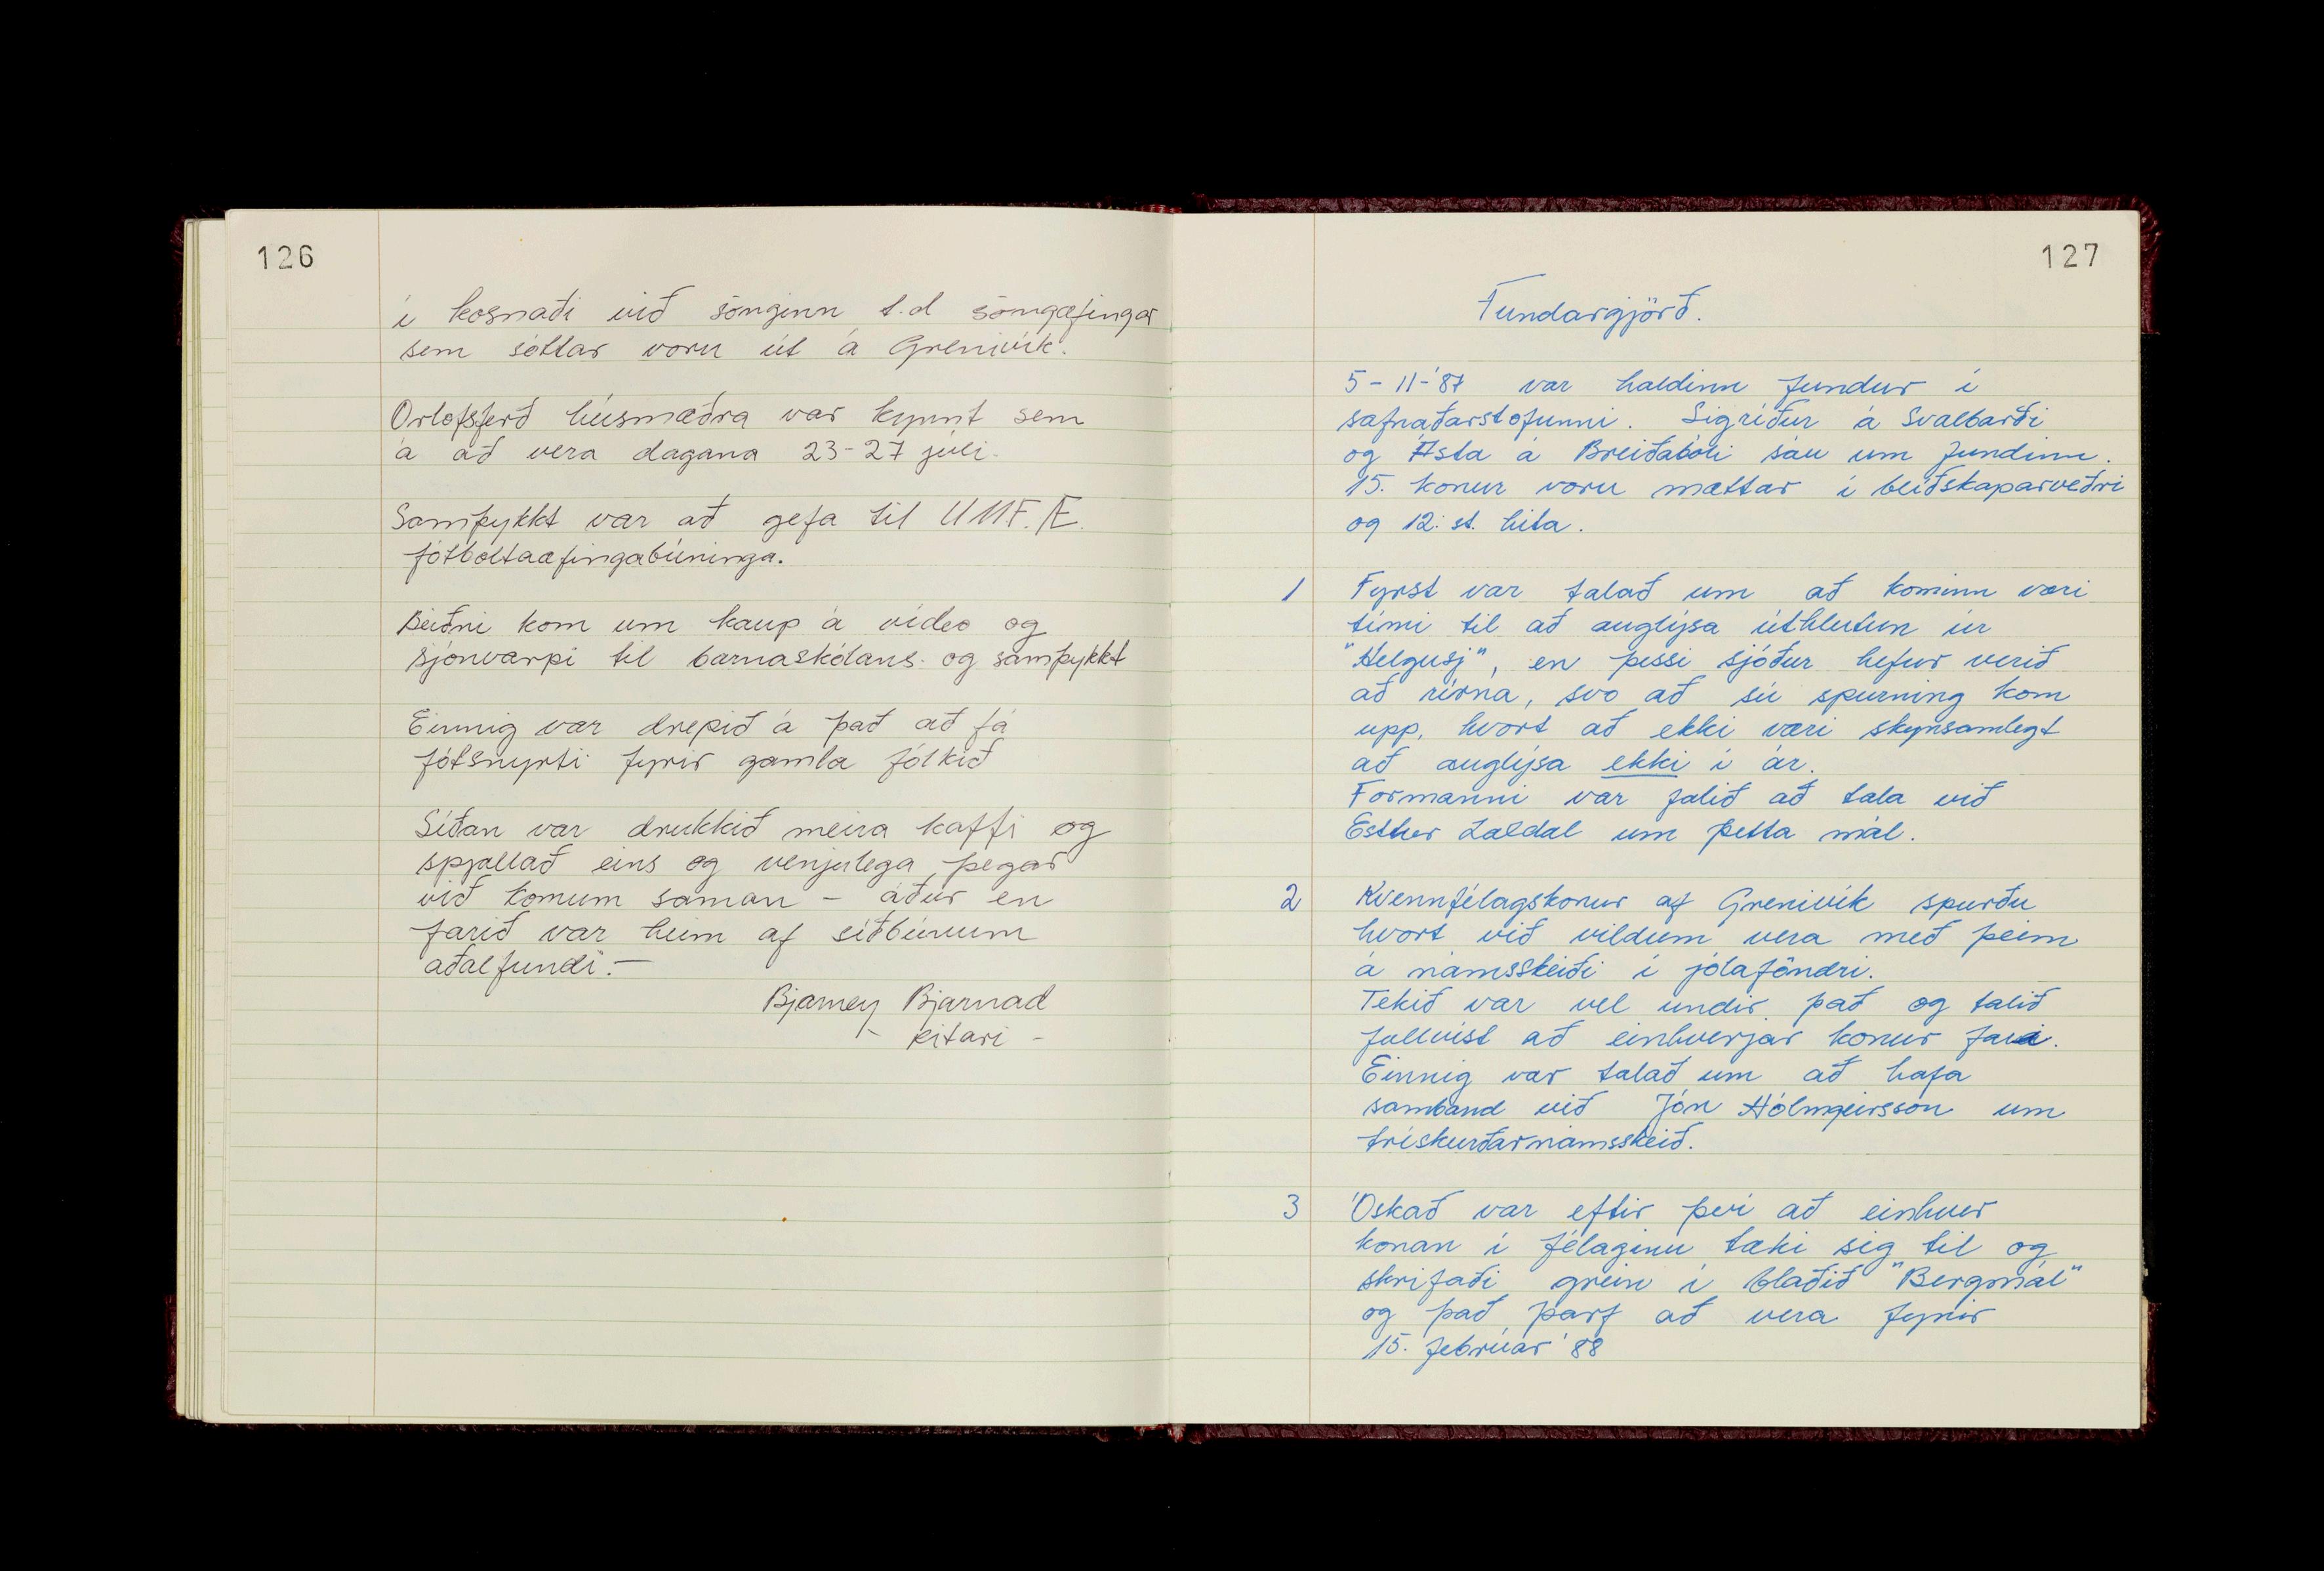 126
í kosnaði við sönginn t.d söngæfingar
sem sóttar voru út á Grenivík.
Orlofsferð húsmæðra var kynnt sem
á að vera dagana 23-27 júlí.
Samþykkt var að gefa til UMF.Æ.
fótboltaæfingabúninga.
Beiðni kom um kaup á video og
sjónvarpi til barnaskólans og samþykkt
Einnig var drepið á það að fá
fótsnyrti fyrir gamla fólkið
Síðan var drukkið meira kaffi og
spjallað eins og venjulega þegar
við komum saman - áður en
farið var heim af síðbúnum
aðalfundi.-
Bjarney Bjarnad
ritari -
127
Fundargjörð.
5-11-'87 var haldinn fundur í
safnaðarstofunni. Sigríður á Svalbarði
og Ásta á Breiðabóli sáu um fundinn.
15. konur voru mættar í blíðskaparveðri
og 12. st. hita.
1 Fyrst var talað um að kominn væri
tími til að auglýsa úthlutun úr
"Helgusj", en þessi sjóður hefur verið
að rírna, svo að sú spurning kom
upp, hvort að ekki væri skynsamlegt
að auglýsa ekki í ár.
Formanni var falið að tala við
Esther Laldal um þetta mál.
2 Kvennfélagskonur af Grenivík spurðu
hvort við vildum vera með þeim
á námsskeiði í jólaföndri.
Tekið var vel undir það og talið
fullvíst að einhverjar konur fari.
Einnig var talað um að hafa
samband við Jón Hólmgeirsson um
tréskurðarnámsskeið.
3 Óskað var eftir því að einhver
konan í félaginu tæki sig til og
skrifaði grein í blaðið "Bergmál"
og það þarf að vera fyrir
15. febrúar '88